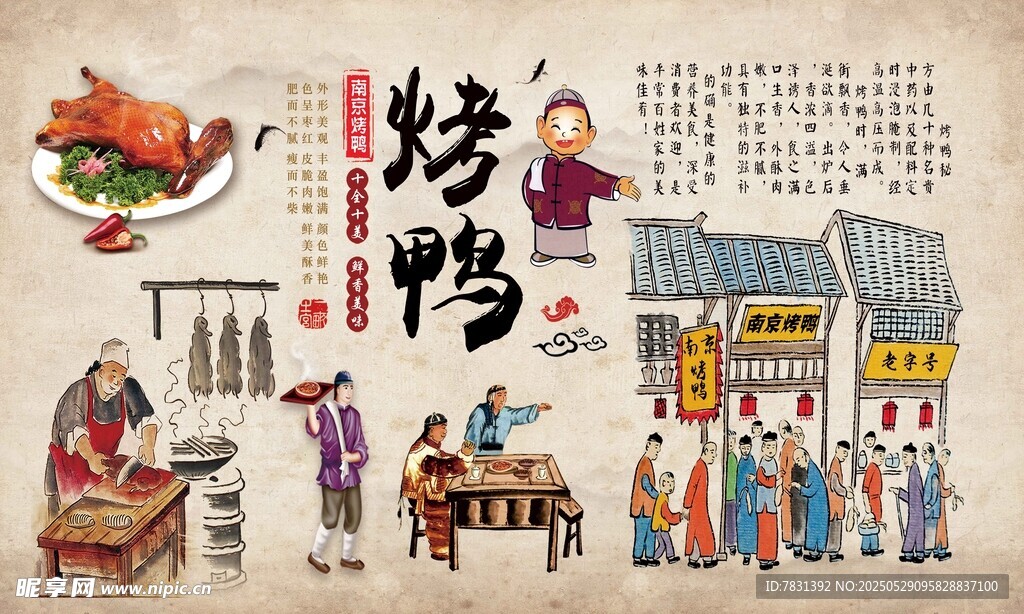 烤鸭秘
方由几十种名贵
中药以及配料定
时浸泡腌制，经
高温高压而成。
烤鸭时，满
街飘香，令人垂
涎欲滴。出炉后
，香浓四溢，色
泽诱人，食之满
口生香，外酥肉
嫩，不肥不腻，
具有独特的滋补
功能。
的确是健康的
营养美食，深受
消费者欢迎，是
平常百姓家的美
味佳肴！
烤鸭
南京烤鸭
十全十美
鲜香美味
外形美观 丰盈饱满 颜色鲜艳
色呈枣红 皮脆肉嫩 鲜美酥香
肥而不腻 瘦而不柴
南京烤鸭
南京
烤鸭
老字号
昵享网 www.nipic.cn
ID:7831392 NO:20250529095828837100